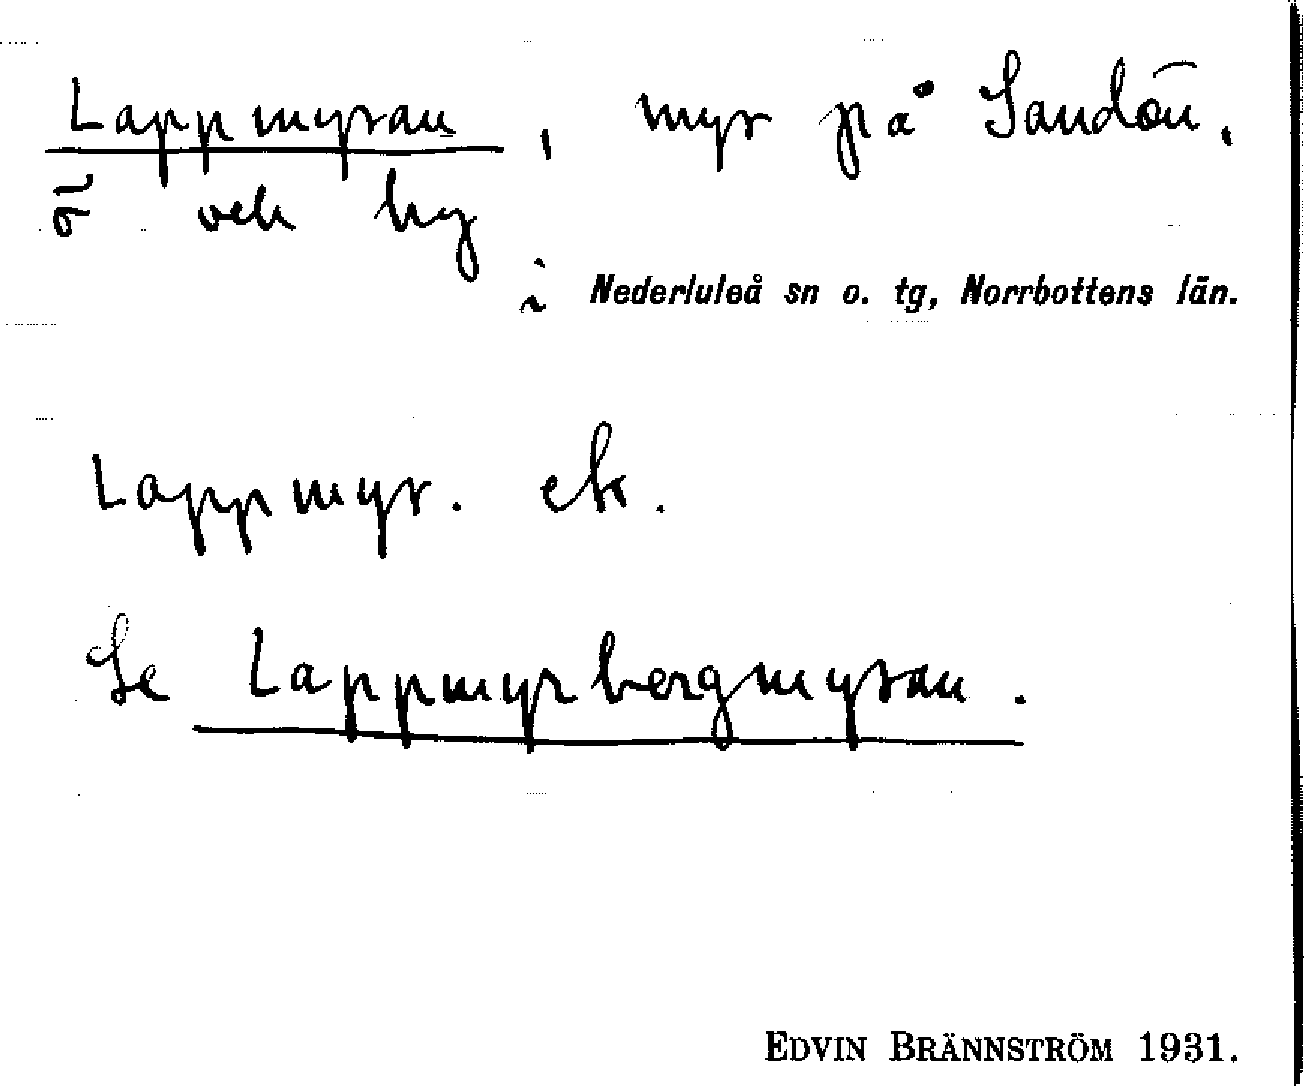 Lappmyran, myr på Sandön.
och by
i Nederluleå sn o. tg, Norrbottens län.
Lappmyr. ek.
Se Lappmyrbergmyran.
EDVIN BRÄNNSTRÖM 1931.